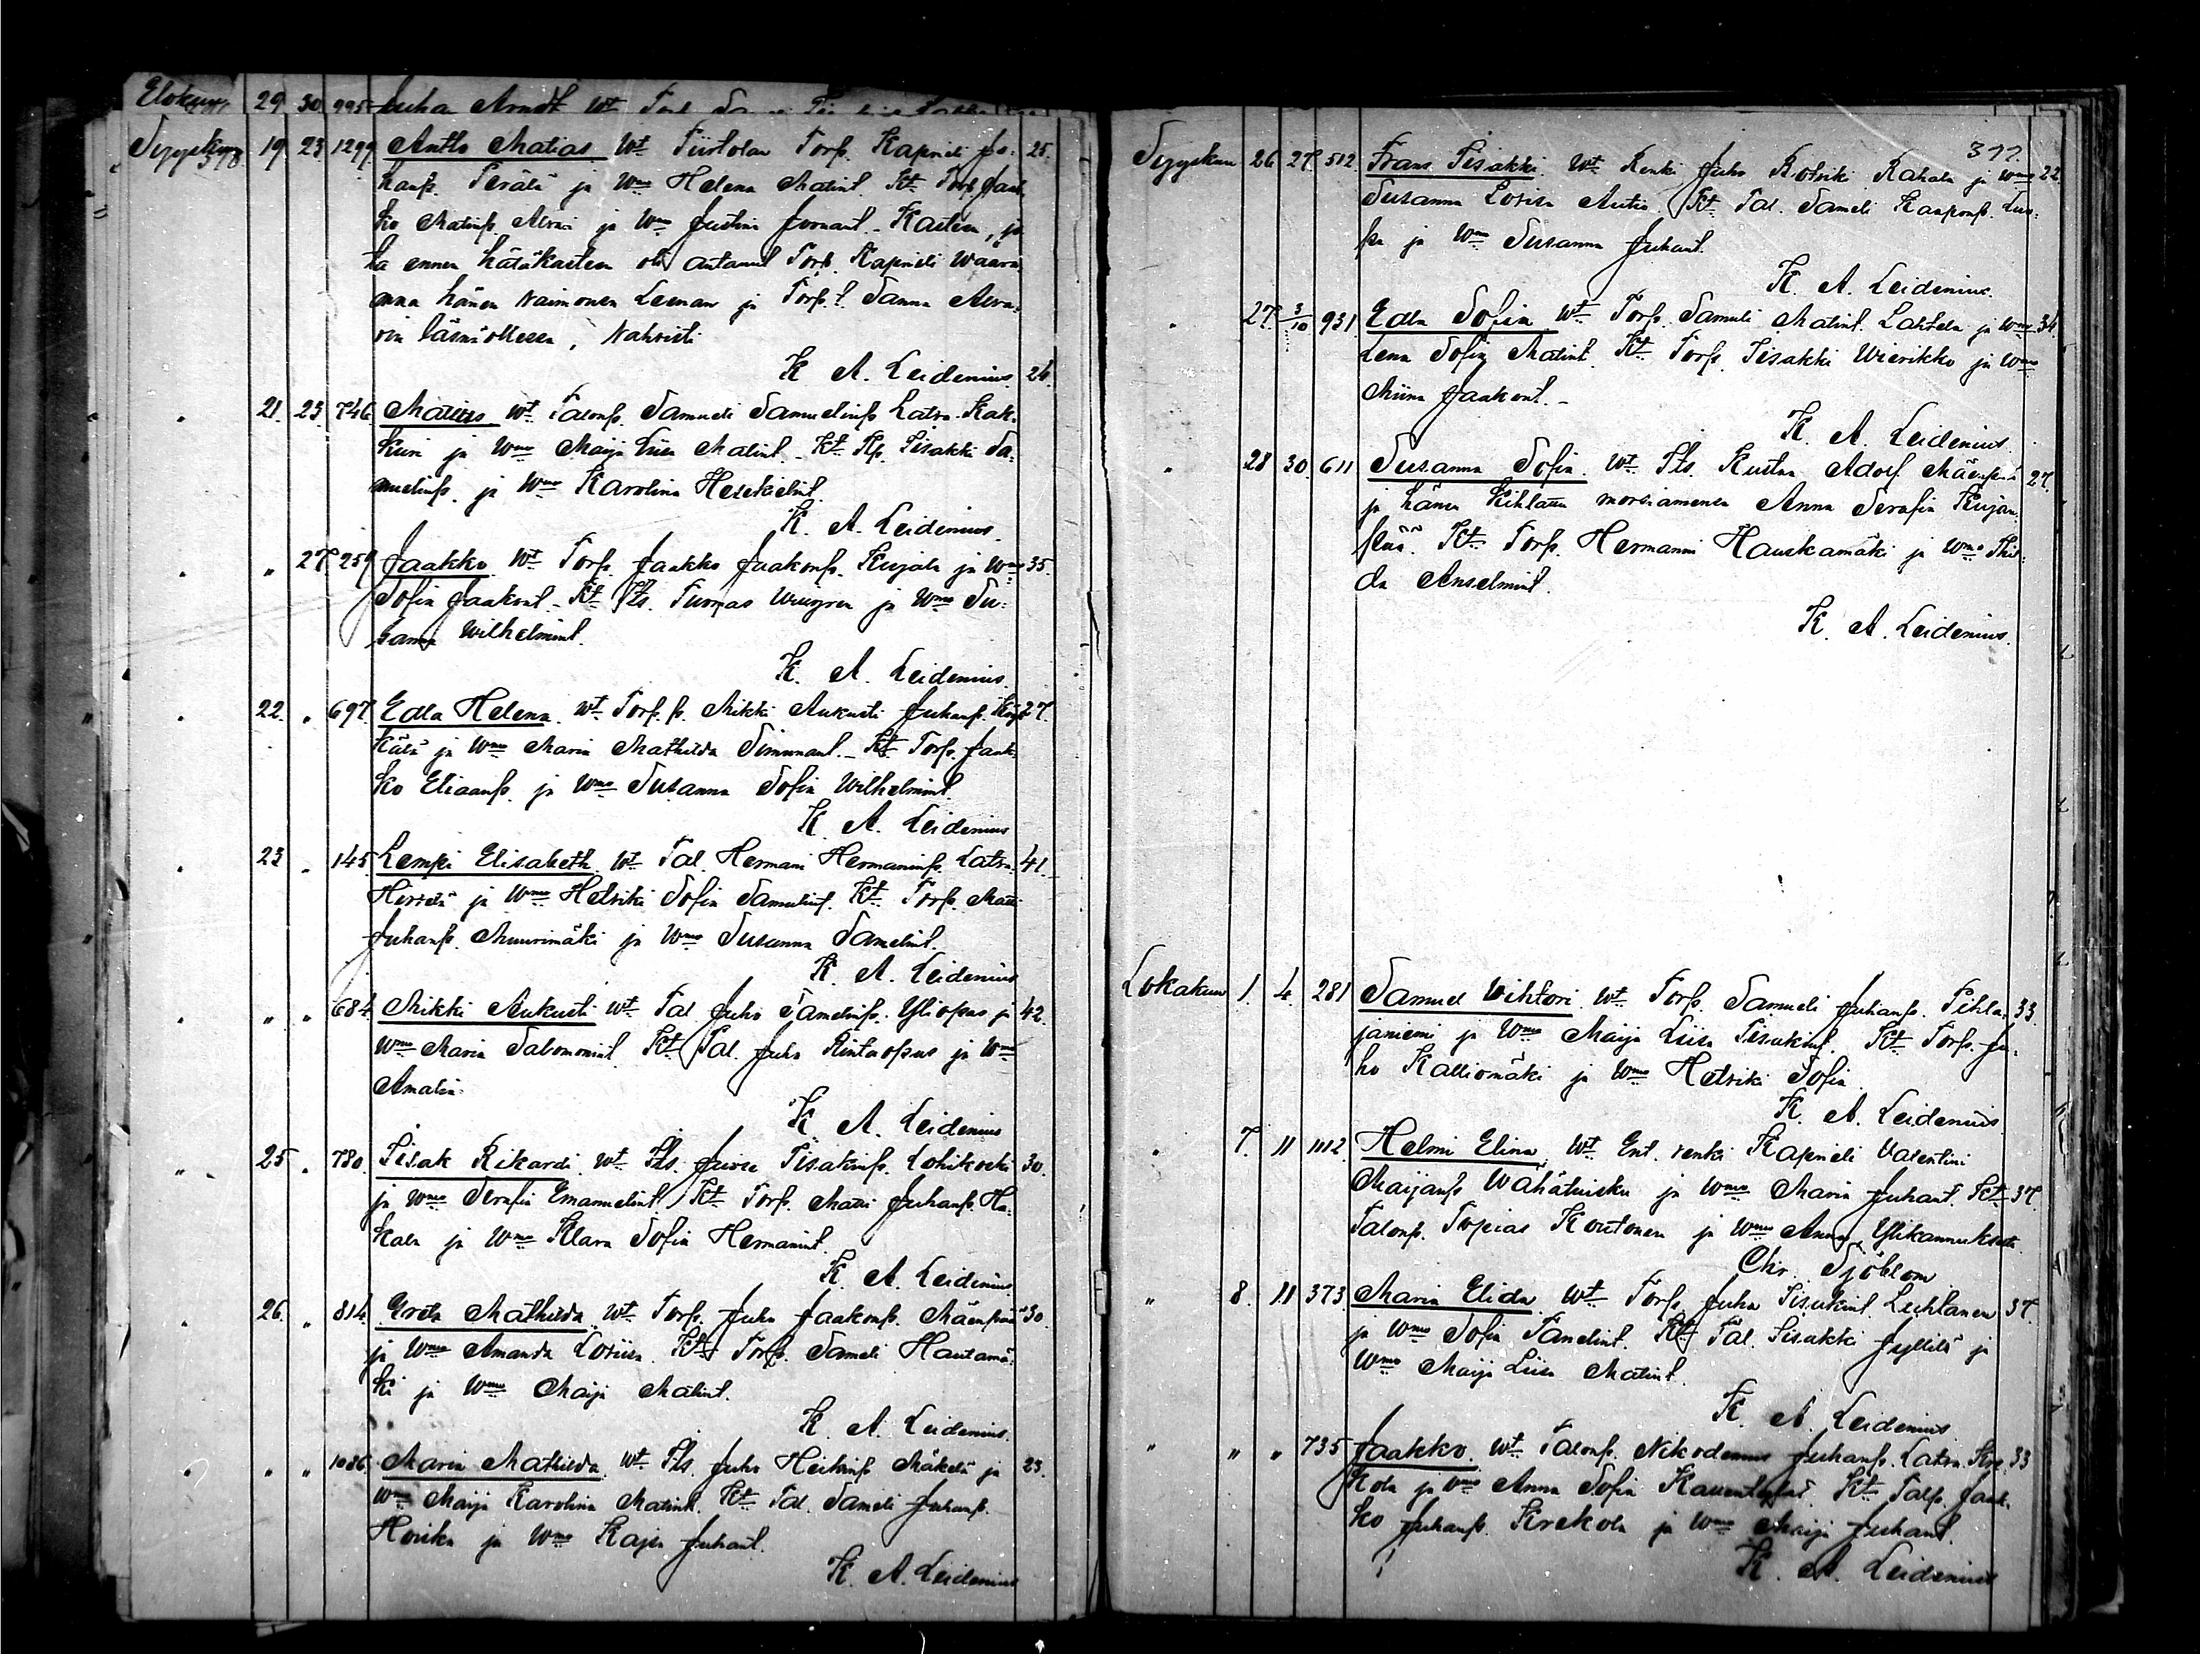 Elokuu 29 30 995 Juha Arndt wt
Syyskuu 19 23 1299 Antto Matias wt Torp. Kaprieli Ju- 25.
hanp. Terälä ja Wmo Helena Matint. Kt Torp Jaak
ko Matinp. ja Wmo Justina . Kasteen, jo
ta ennen hätäkasteen oli antanut Torp. Kaprieli
anna hänen Vaimonsa Leenan ja Torp. t. Sanna
rin läsnäollessa, Vahvisti
K A. Leidenius
378
21 23 746 Matias wt Talonp. Samueli Samuelinp. Latva-Kak- 26.
kuri ja Wmo Maija Liisa Matint. Kt Iisakki Sa-
muelinp. ja Wmo Karolina Heskielint.
K. A. Leidenius.
" 27 259 Jaakko wt Torp. Jaakko Jaakonp. Kujala ja Wmo 35.
Sofia Jaakont. Kt Its. Tuomas ja Wmo Su-
sanna Wilhelmint.
K. A. Leidenius.
22. " 697 Edla Helena wt Torp. p. Mikki Aukusti Juhanp. 27.
ja Wmo Maria Mathilda Simunant. Kt Torp. Jaak-
ko Eliaanp. ja Wmo Susanna Sofia Wilhelmint.
K. A. Leidenius
23 " 145 Lempi Elisabeth wt Tal. Hermani Hermaninp. Latva- 41.
Hirvelä ja Wmo Hetviki Sofia Samulint. Kt Torp. Matti
Juhanp. Muurimäki ja Wmo Susanna Samelint.
K. A. Leidenius
" " 684. Mikki Aukusti wt Tal Juho Samelinp. Yliopas ja 42.
Wmo Maria Salomonint. Kt Tal. Juho Rintaopas ja Wmo
Amalia.
K. A. Leidenius
25 " 780. Iisak Rikardi wt Its. Iisakinp. Lohikoski 30.
ja Wmo Serafia Emanuelint. Kt Torp. Matti Juhanp. Ha-
kala ja Wmo Klara Sofia Hermanint.
K. A. Leidenius
26. " 814. Greta Mathilda wt Torp. Juho Jaakonp. Mäenpää 30.
ja Wmo Amanda Loviisa. Kt Torp. Sameli Hautamä-
ki ja Wmo Maija Matint.
K. A. Leidenius.
" " 1086. Maria Mathilda wt Its. Juho Heikinp. Mäkelä ja 23.
Wmo Maija Karolina Matint. Kt Tal. Sameli Juhanp.
ja Wmo Kajsa Juhant.
K. A. Leidenius
377.
Syyskuu 26 27. 512. Frans Iisakki wt Renki Juho Kotniki Kahala ja Wmo 22.
Susanna Lovisa Autio. Kt Tal. Sameli Kaaponp. Lus-
pa ja Wmo Susanna Juhant.
K. A. Leidenius.
27. 3/10 931 Edla Sofia wt Torp. Samuli Matint. Lahtela ja Wmo 34.
Lena Sofia Matint. Kt Torp. Iisakki Wierikko ja Wmo
Miina Jaakont.
K. A. Leidenius.
28 30 611 Susanna Sofia wt Its. Kustaa Adolf Mäenpää 27.
ja hänen kihlattu morsiamensa Anna Serafia Kujan-
pää. Kt Torp. Hermanni Hauskamäki ja Wmo
da Anselmint.
K. A. Leidenius.
Lokakuu 1. 4. 281 Samuel Vihtori wt Torp. Samueli Juhanp. Pihla- 33.
janiemi ja Wmo Maija Liisa Iisakint. Kt Torp. Ju-
ho Kalliomäki ja Wmo Hetviki Sofia.
K. A. Leidenius.
7. 11 1112. Helmi Elina wt Ent. renki Kaprieli Valentini
Maijanp. Wähätuisku ja Wmo Maria Juhant. Kt 37.
Talonp. Topias Koutonen ja Wmo Anna Ylikannukselta.
Chr. Sjöblom
" 8. 11 373. Maria Elida wt Torp. Juha Iisakint. Leihtanen 37.
ja Wmo Sofia Tanelint. Kt Tal. Iisakki Jyllilä ja
Wmo Maija Liisa Matint.
K. A. Leidenius.
" " " 735 Jaakko wt Talonp. Nikodemus Juhanp. Latva-Kre- 33
kola ja Wmo Anna Sofia. Kt Talp. Jaak-
ko Juhanp. Krekola ja Wmo Maija Juhant.
K. A. Leidenius